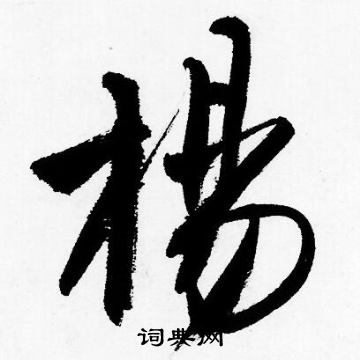 楊
词典网